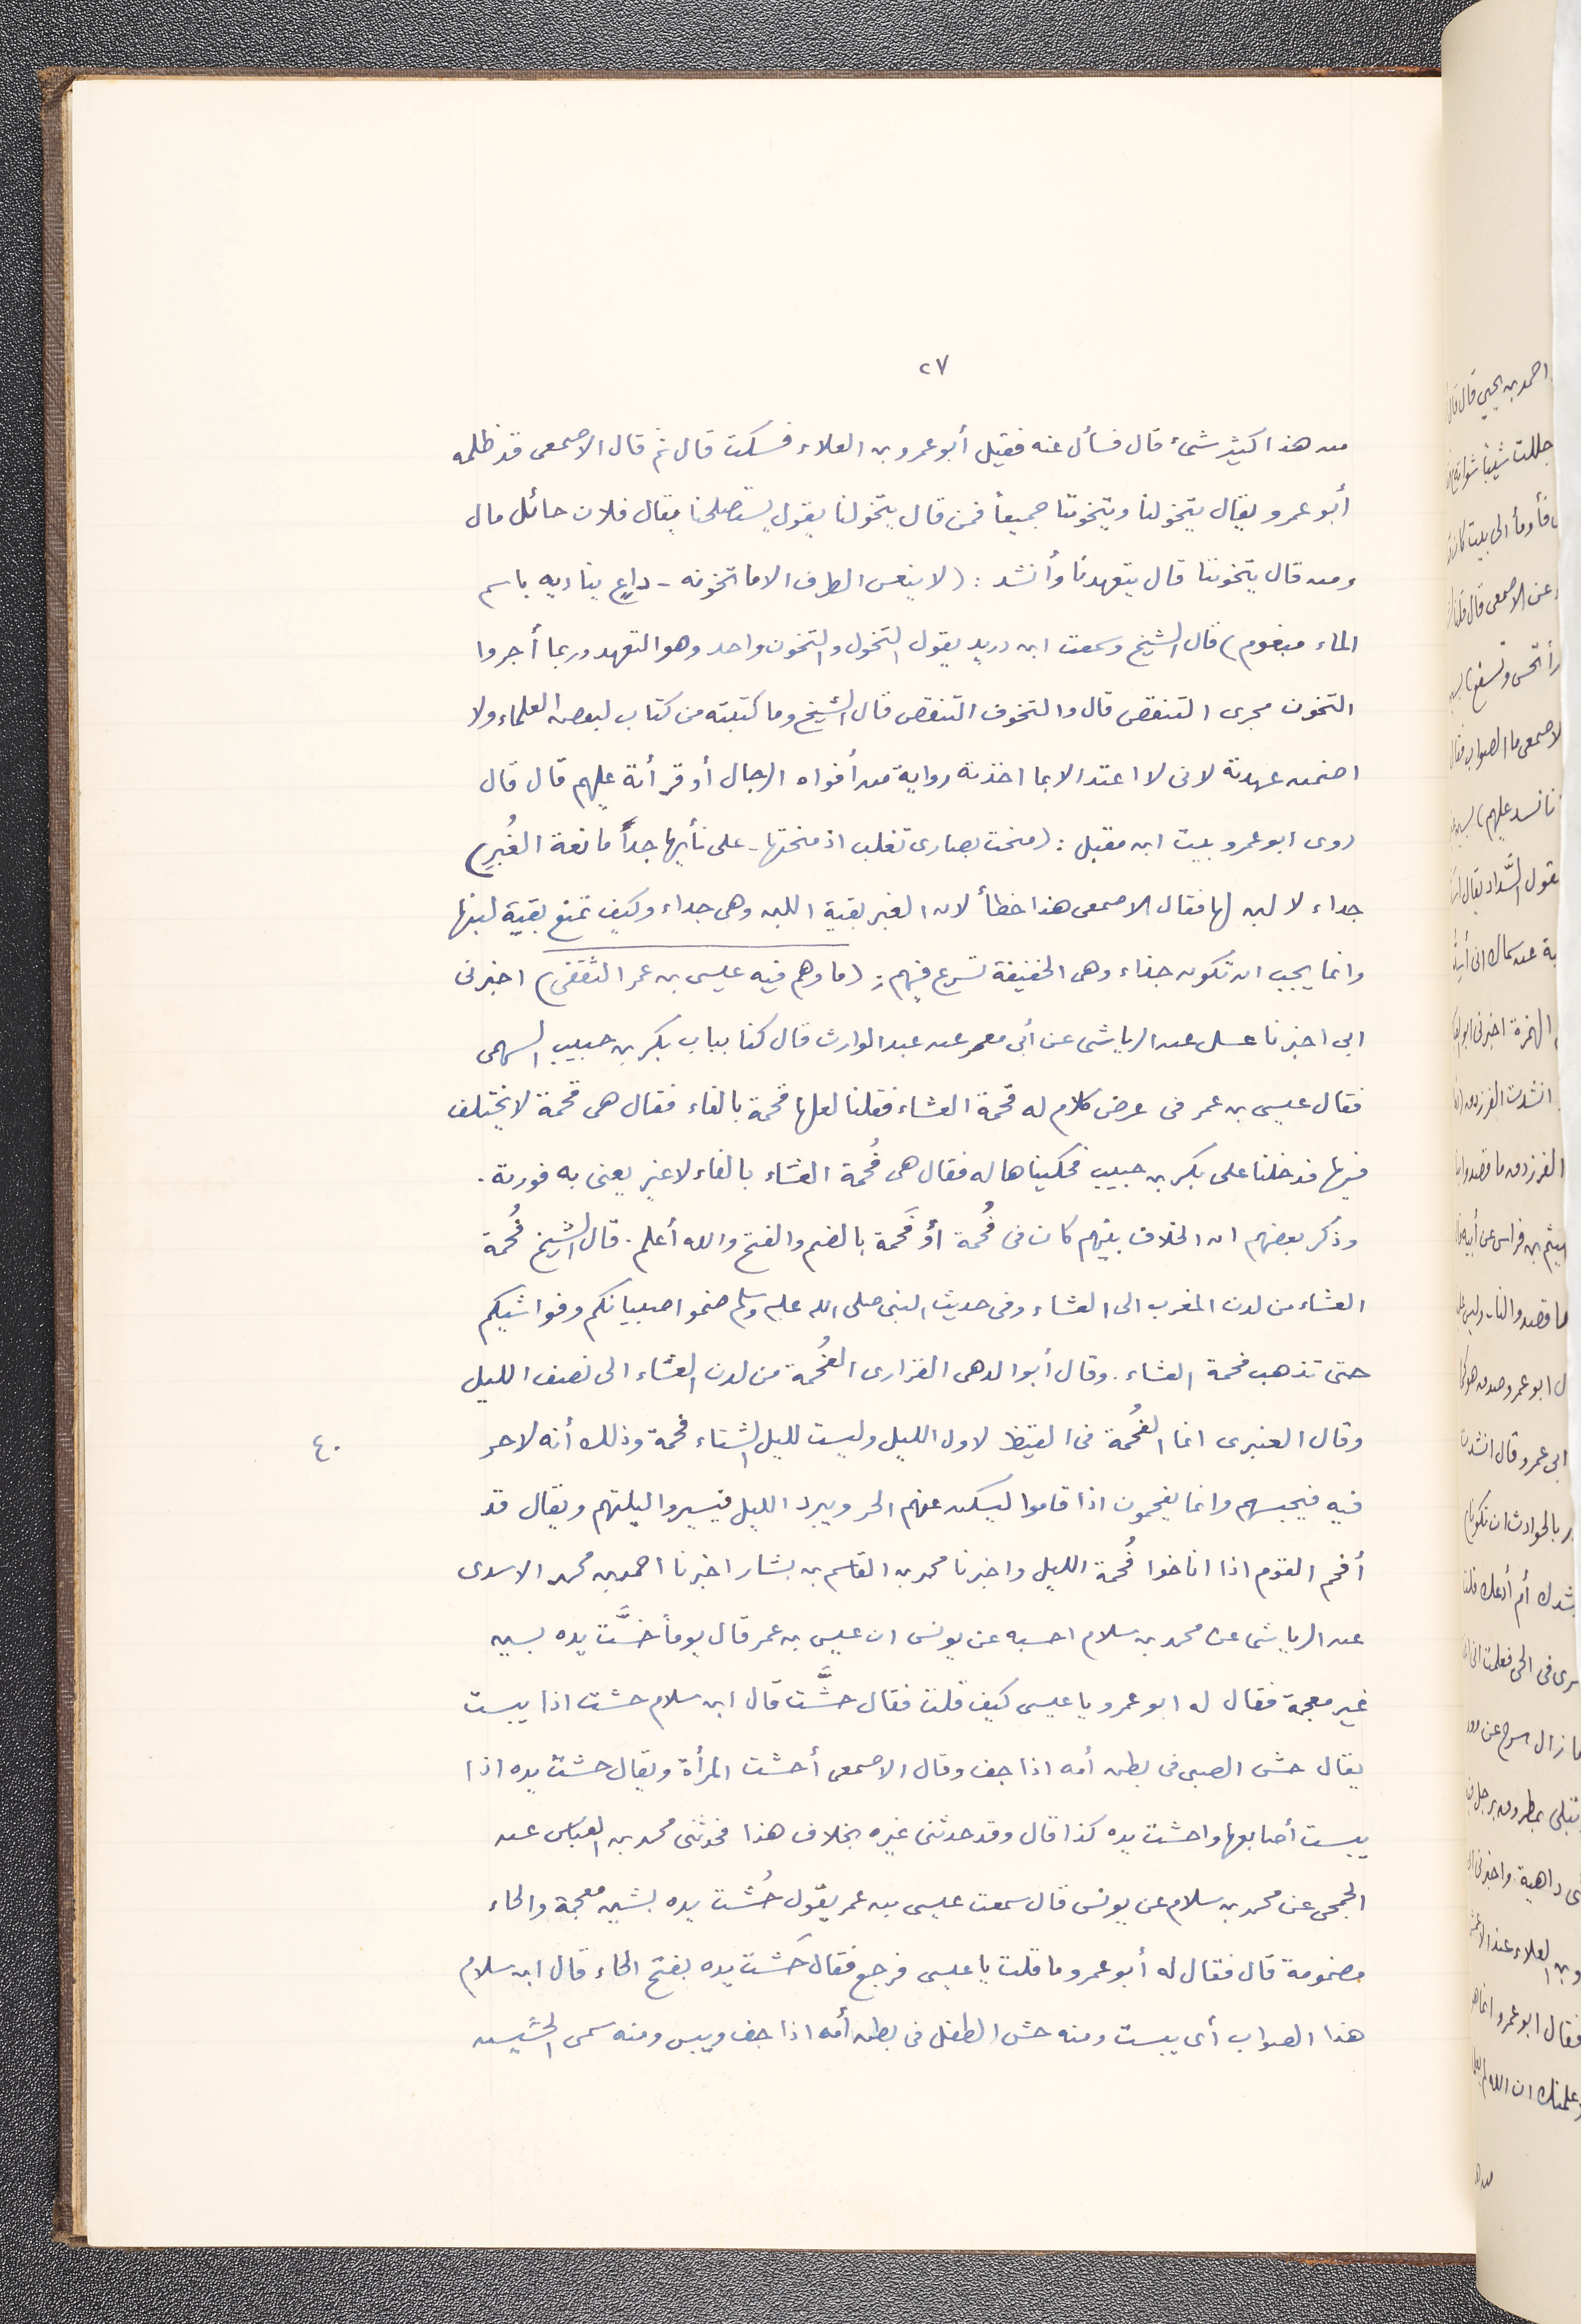 ٢٧
من هذا كثير شىء قال فسأل عنه فقيل أبو عمرو بن العلاء فسكت قال ثم قال الاصمعى قد ظلمه
أبو عمرو يقال يتخولنا ويتخوننا جميعاً فمن قال يتخولنا يقول يستصلحنا يقال فلان حائل مال
ومن قال يتخوننا قال يتعهدنا وأنشد : (لا ينعس الطرف الا ما تخونه - داعٍ يناديه باسم
الماء مبغوم) قال الشيخ وسمعت ابن دريد يقول التخول والتخون واحد وهو التعهد وربما أجروا
التخون مجرى التنقص قال والتخوف التنقص قال الشيخ وما كتبته من كتاب لبعض العلماء ولا
اضمن عهدته لانى لا اعتد الا بما اخذته رواية من أفواه الرجال أو قرأته عليهم قال قال
روى ابو عمرو بيت ابن مقبل : (منحت بصارى تغلب اذ منحتها - على نأيها جداً مانعة الغُبرِ)
جداء لا لبن لها فقال الاصمعى هذا خطأ لان الغبر بقية اللبن وهى جداء وكيف تمنع بقية لبنها
وانما يجب ان تكون حذاء وهى الخفيفة تسرع فيهم : (ما وهم فيه عيسى بن عمر الثقفى) اخبرنى
ابى اخبرنا عسل عن الرياشى عن أبى معمر عن عبد الوارث قال كنا بباب بكر بن حبيب السهمى
فقال عيسى بن عمر فى عرض كلام له قحمة العشاء فقلنا لعلها فحمة بالفاء فقال هى قحمة لا يختلف
فيها فدخلنا على بكر بن حبيب فحكيناها له فقال هى فُحمة العشاء بالفاء لا غير يعنى به فورته .
وذكر بعضهم ان الخلاف بينهم كان فى فُحمة أو فَحمة بالضم والفتح والله أعلم . قال الشيخ فُحمة
العشاء من لدن المغرب الى العشاء وفى حديث النبى صلى الله عليه وسلم ضموا صبيانكم وفواشيكم
حتى تذهب فحمة العشاء . وقال أبو الدهى الفزارى الفُحمة من لدن العشاء الى نصف الليل
وقال العنبرى انما الفُحمة فى القيظ لاول الليل وليست لليل الشتاء فحمة وذلك أنه لا حر
٤٠
فيه فيحبسهم وانما يفحمون اذا قاموا ليسكن عنهم الحر ويبرد الليل فيسيروا ليلتهم ويقال قد
أفحم القوم اذا اناخوا فُحمة الليل واخبرنا محمد بن القاسم بن بشار اخبرنا احمد بن محمد الاسدى
عن الرياشى عن محمد بن سلام احسبه عن يونس ان عيسى بن عمر قال يوماً حسَّت يده بسين
غير معجمة فقال له ابو عمرو يا عيسى كيف قلت فقال حشَّت قال ابن سلام حشت اذا يبست
يقال حش الصبى فى بطن أمه اذا جف وقال الاصمعى أحشت المرأة ويقال حشت يده اذا
يبست أصابعها واحشت يده كذا قال وقد حدثنى غيره بخلاف هذا فحدثنى محمد بن العباس عن
الجمحى عن محمد بن سلام عن يونس قال سمعت عيسى بن عمر يقول حُشت يده بشين معجمة والحاء
مضمومة قال فقال له أبو عمرو ما قلت يا عيسى فرجع فقال حَشت يده بفتح الحاء قال ابن سلام
هذا الصواب أى يبست ومنه حش الطفل فى بطن أمه اذا جف ويبس ومنه سمى الحشيش